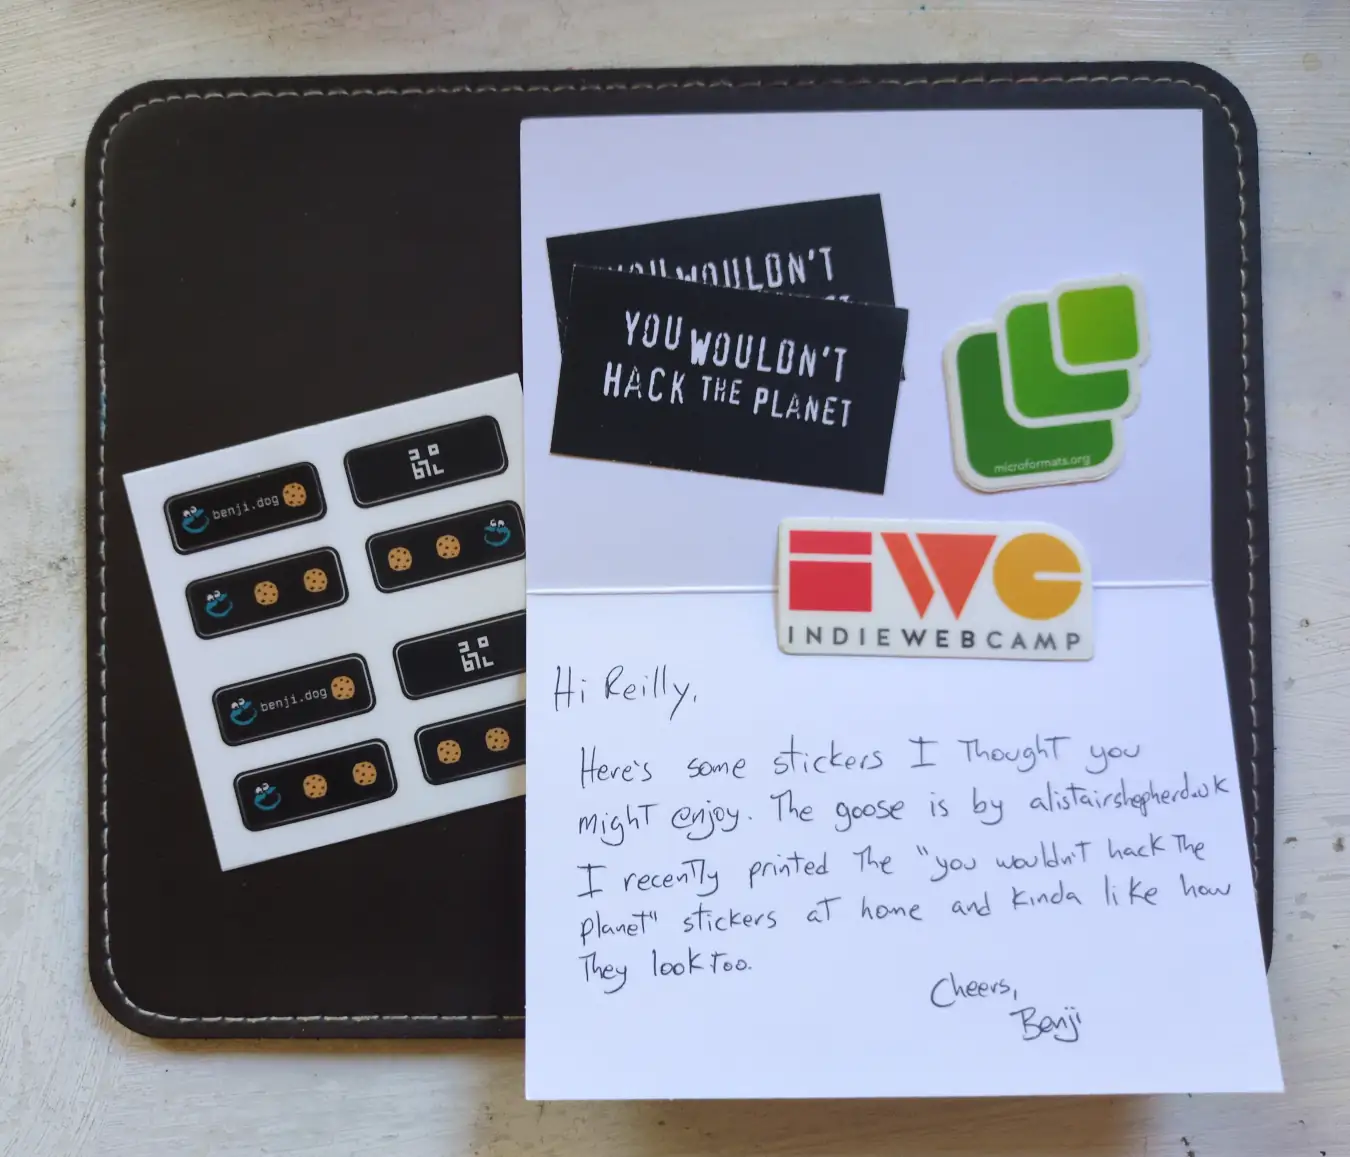 YOU WOULDN'T
YOU WOULDN'T
HACK THE PLANET
microformats.org
IWC
INDIEWEBCAMP
benji.dog
benji.dog
Hi Reilly,
Here's some stickers I thought you
might enjoy. The goose is by alistairshepherd.uk
I recently printed the "you wouldn't hack the
planet" stickers at home and kinda like how
they look too.
Cheers,
Benji